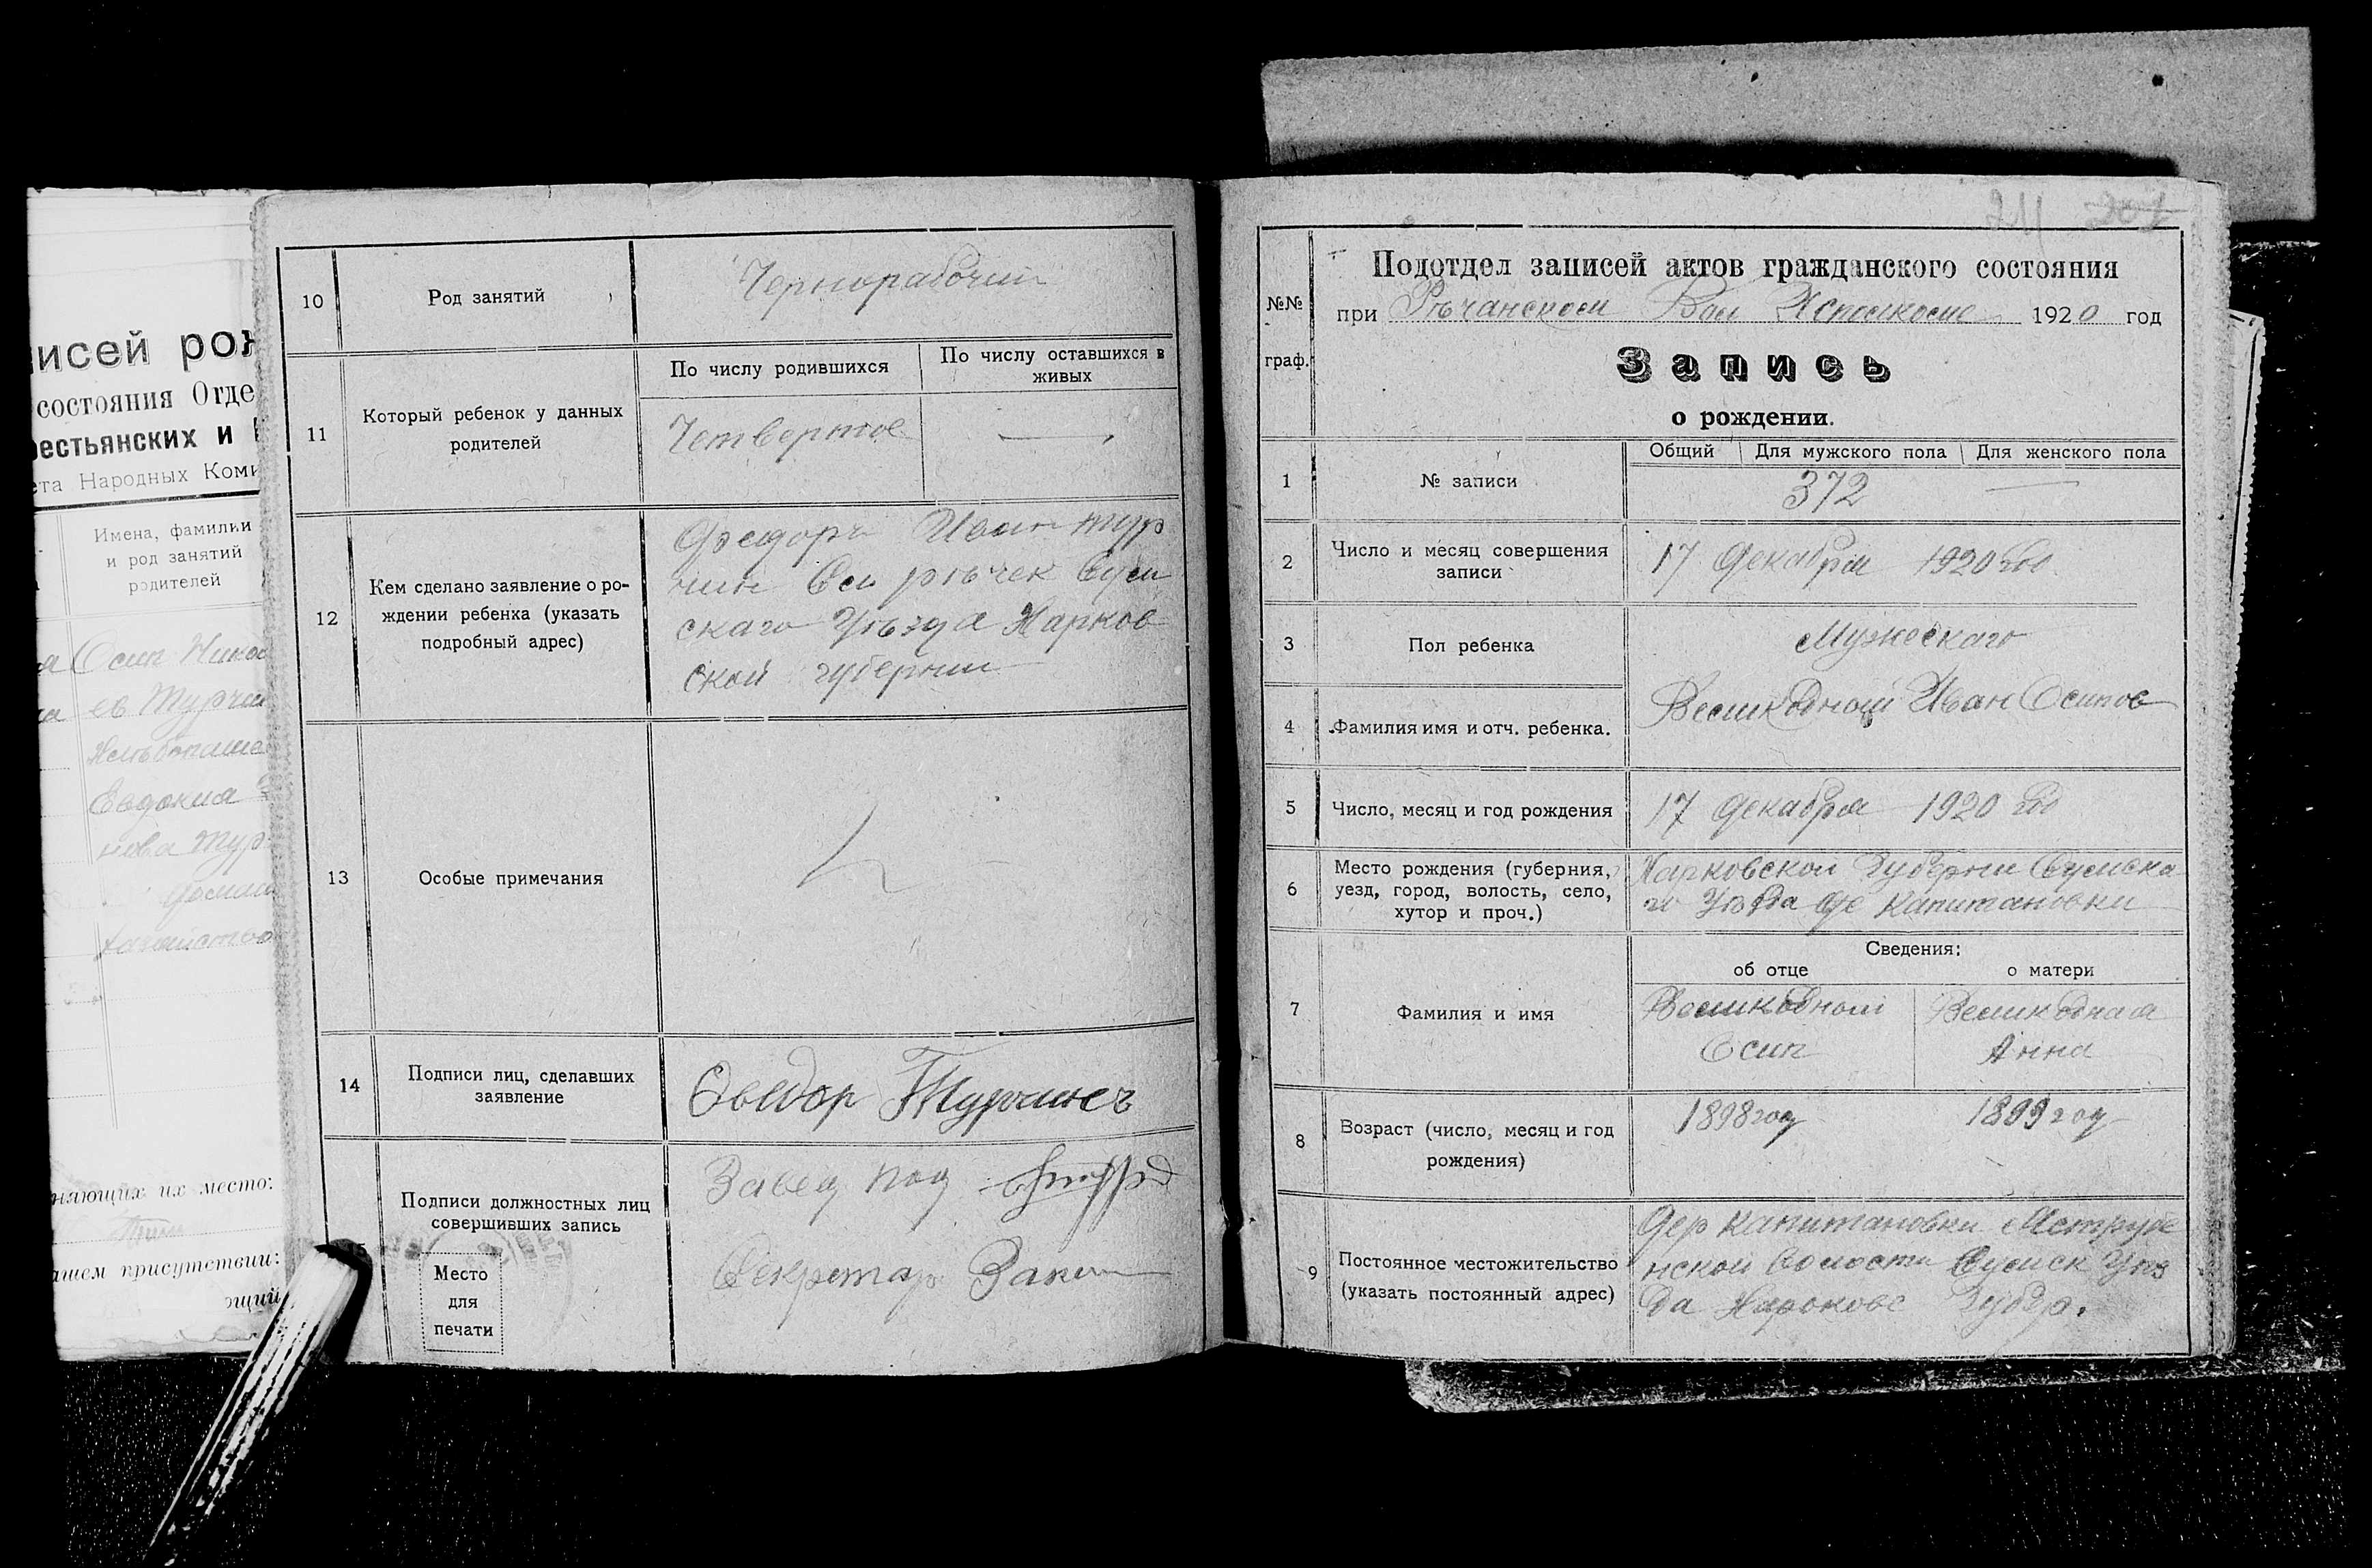 исей рож
состояния Отде
рестьянских и К
ета Народных Коми
Имена, фамилии
и род занятий
родителей
Осип Никол
ев Турчи
Хлѣбопаше
Евдокия
нова Тур
домаш
хозяйство
няющих их место:
ашем присутствии:
ющий
10
Род занятий
Чернорабочий
11
Который ребенок у данных
родителей
По числу родившихся
По числу оставшихся в
живых
Четвертое
—
12
Кем сделано заявление о ро-
ждении ребенка (указать
подробный адрес)
Федоръ Иван Тур
чин Сел рѣчек Сум
скаго Уѣзда Харков
ской губернии
13
Особые примечания
14
Подписи лиц, сделавших
заявление
Фьедор Турчинег
15
Подписи должностных лиц
совершивших запись
Место
для
печати
Завед Под
Секретар
211 207
№№
граф.
Подотдел записей актов гражданского состояния
при Рѣчанском Вол Исполкоме 1920 год
Запись
о рождении.
1
№ записи
Общий
Для мужского пола
Для женского пола
372
—
2
Число и месяц совершения
записи
17 декабря 1920 год
3
Пол ребенка
Мужескаго
4
Фамилия имя и отч. ребенка.
Великодной Иван Осипов
5
Число, месяц и год рождения
17 декабря 1920 год
6
Место рождения (губерния,
уезд, город, волость, село,
хутор и проч.)
Харковской Губернии Сумска
го Уѣзда де Капитановки
7
Фамилия и имя
Сведения:
об отце
о матери
Великодной
Осип
Великодная
Анна
8
Возраст (число, месяц и год
рождения)
1898 год
1899 год
9
Постоянное местожительство
(указать постоянный адрес)
дер Капитановки
нской Волости Сумск Уѣз
да Харковс Губер.